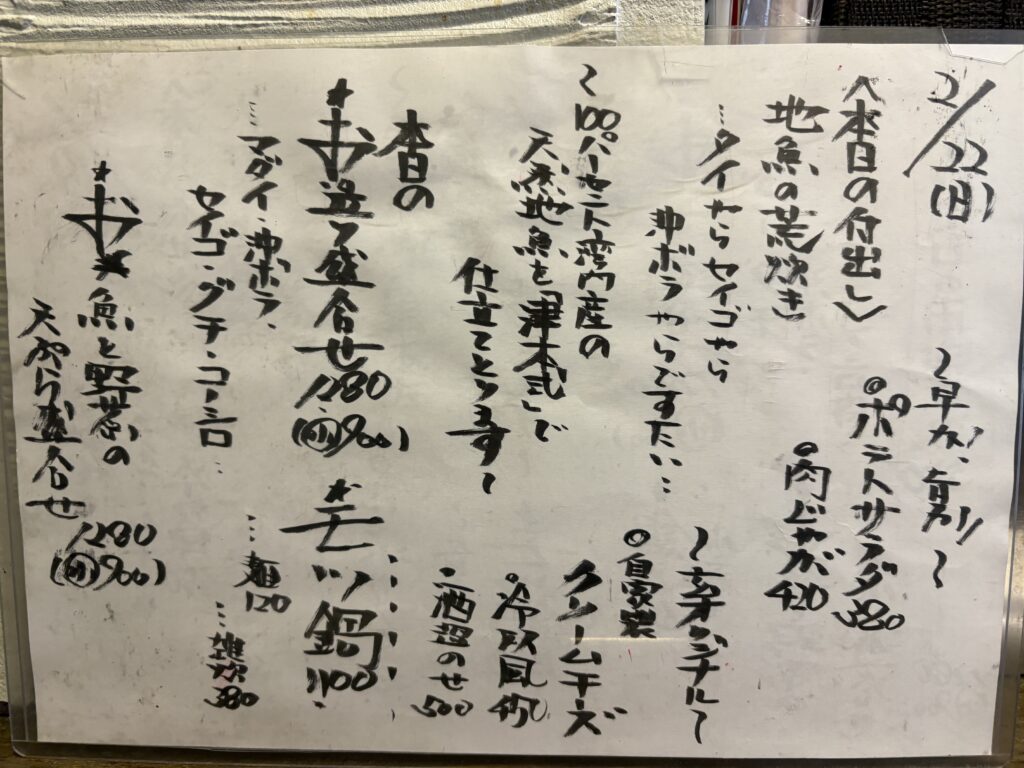 2/22(日)
〈本日の付出し〉
地魚の荒炊き
…タイやらセイゴやら
沖ボラやらですたい…
～100パーセント湾内産の
天然地魚を「津本式」で
仕立てとります～
本日の
お造り盛合せ1280
(小900)
…マダイ・沖ボラ、
セイゴ・グチ・コーシロ…
お魚と野菜の
天ぷら盛合せ
1280
(小900)
～早が、
～
◎ポテトサラダ380
◎肉じゃが420
～
～
◎自家製
クリームチーズ
冷奴風
酒盗のせ500
モツ鍋1100
…麺120
…雑炊380